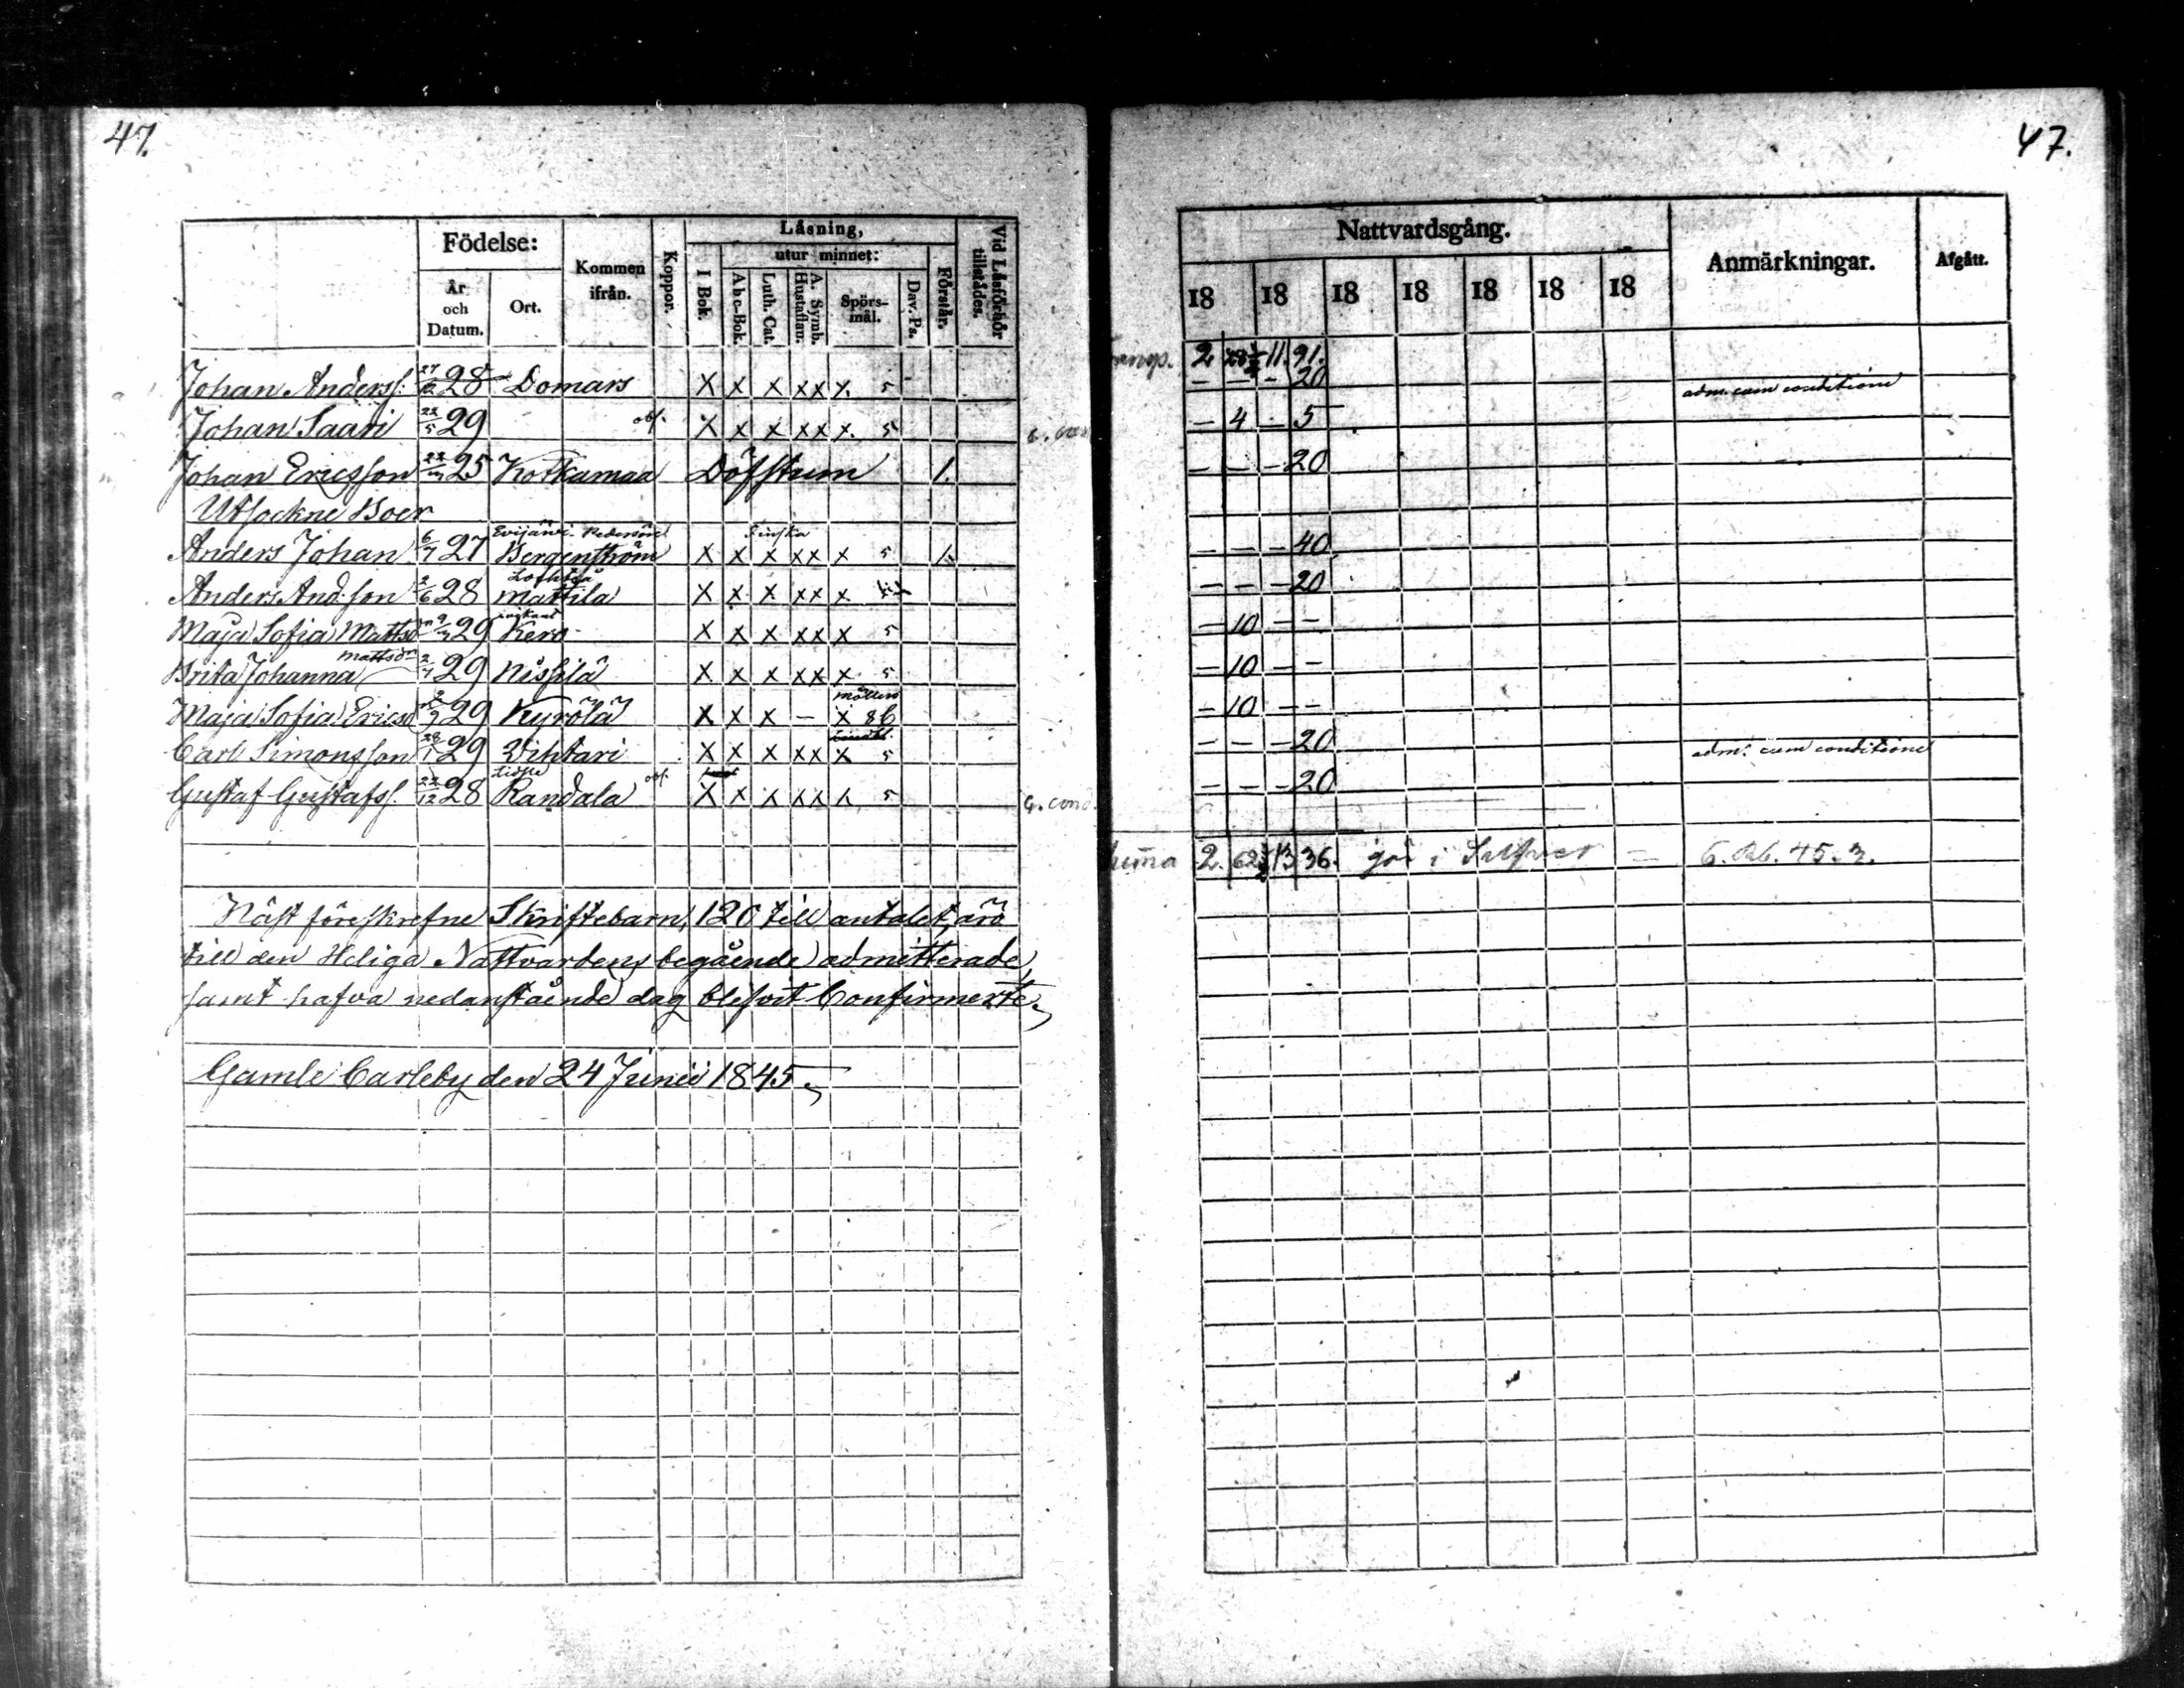 47.
Födelse:
År och Datum.
Ort.
Kommen ifrån.
Koppor.
Läsning,
I Bok.
utur minnet:
Abc-Bok.
Luth. Cat.
A. Symb. Hustaflan.
Spörsmål.
Dav. Ps.
Förstår.
Vid Läsförhör tillstädes.
Johan Anderss. 28 Domars X x x xx x. 5
Johan Saari 22/5 29 obs. X x x xx x. 5
Johan Ericsson 25 Kotkamaa Döfstum 1.
Utsockne Boer
Evijärvi Pedersöre Finska
Anders Johan 6/7 27 Bergenström x x x xx x 5 1.
Lochteå
Anders And.son 2/6 28 Mattila X x x xx x
Maja Sofia Mattsd 29 Kero X x x xx x 5
Mattsdr
Brita Johanna 29 Nissilä X x x xx x. 5
Maja Sofia Ericsd 29 Kyrölä X x x – x 86
Carl Simonsson 28/1 29 Vihtari X x x xx x 5
Gustaf Gustafss. 22/12 28 Randala obs. X x x xx x 5
c. cond.
Näst föreskrefne Skriftebarn, 120 till antalet, äro
till den Heliga Nattvardens begående admitterade,
samt hafva nedanstående dag blifvit Confirmerte.
Gamle Carleby den 24 Junii 1845.
47.
Nattvardsgång.
Anmärkningar.
Afgått.
18 18 18 18 18 18 18
Transp. 2 28½ 11. 91.
– – – 20 adm. cum conditione
– 4 – 5
– – – 20
– – – 40
– – – 20
– 10 – –
– 10 – –
– 10 – –
– – – 20 adm. cum conditione
– – – 20
Summa 2. 62½ 13 36. gör i Silfver = 6. Rb. 45. 3.